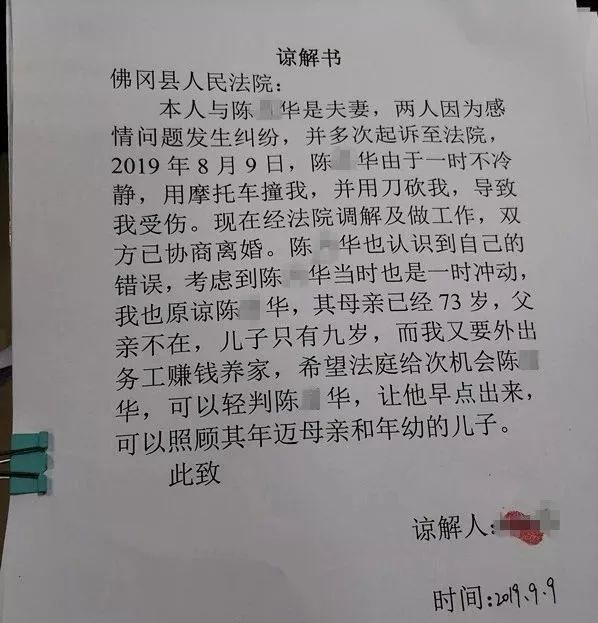 谅解书
佛冈县人民法院：
本人与陈 华是夫妻，两人因为感
情问题发生纠纷，并多次起诉至法院，
2019 年 8 月 9 日，陈 华由于一时不冷
静，用摩托车撞我，并用刀砍我，导致
我受伤。现在经法院调解及做工作，双
方已协商离婚。陈 华也认识到自己的
错误，考虑到陈 华当时也是一时冲动，
我也原谅陈 华，其母亲已经 73 岁，父
亲不在，儿子只有九岁，而我又要外出
务工赚钱养家，希望法庭给次机会陈
华，可以轻判陈 华，让他早点出来，
可以照顾其年迈母亲和年幼的儿子。
此致
谅解人:
时间:2019.9.9